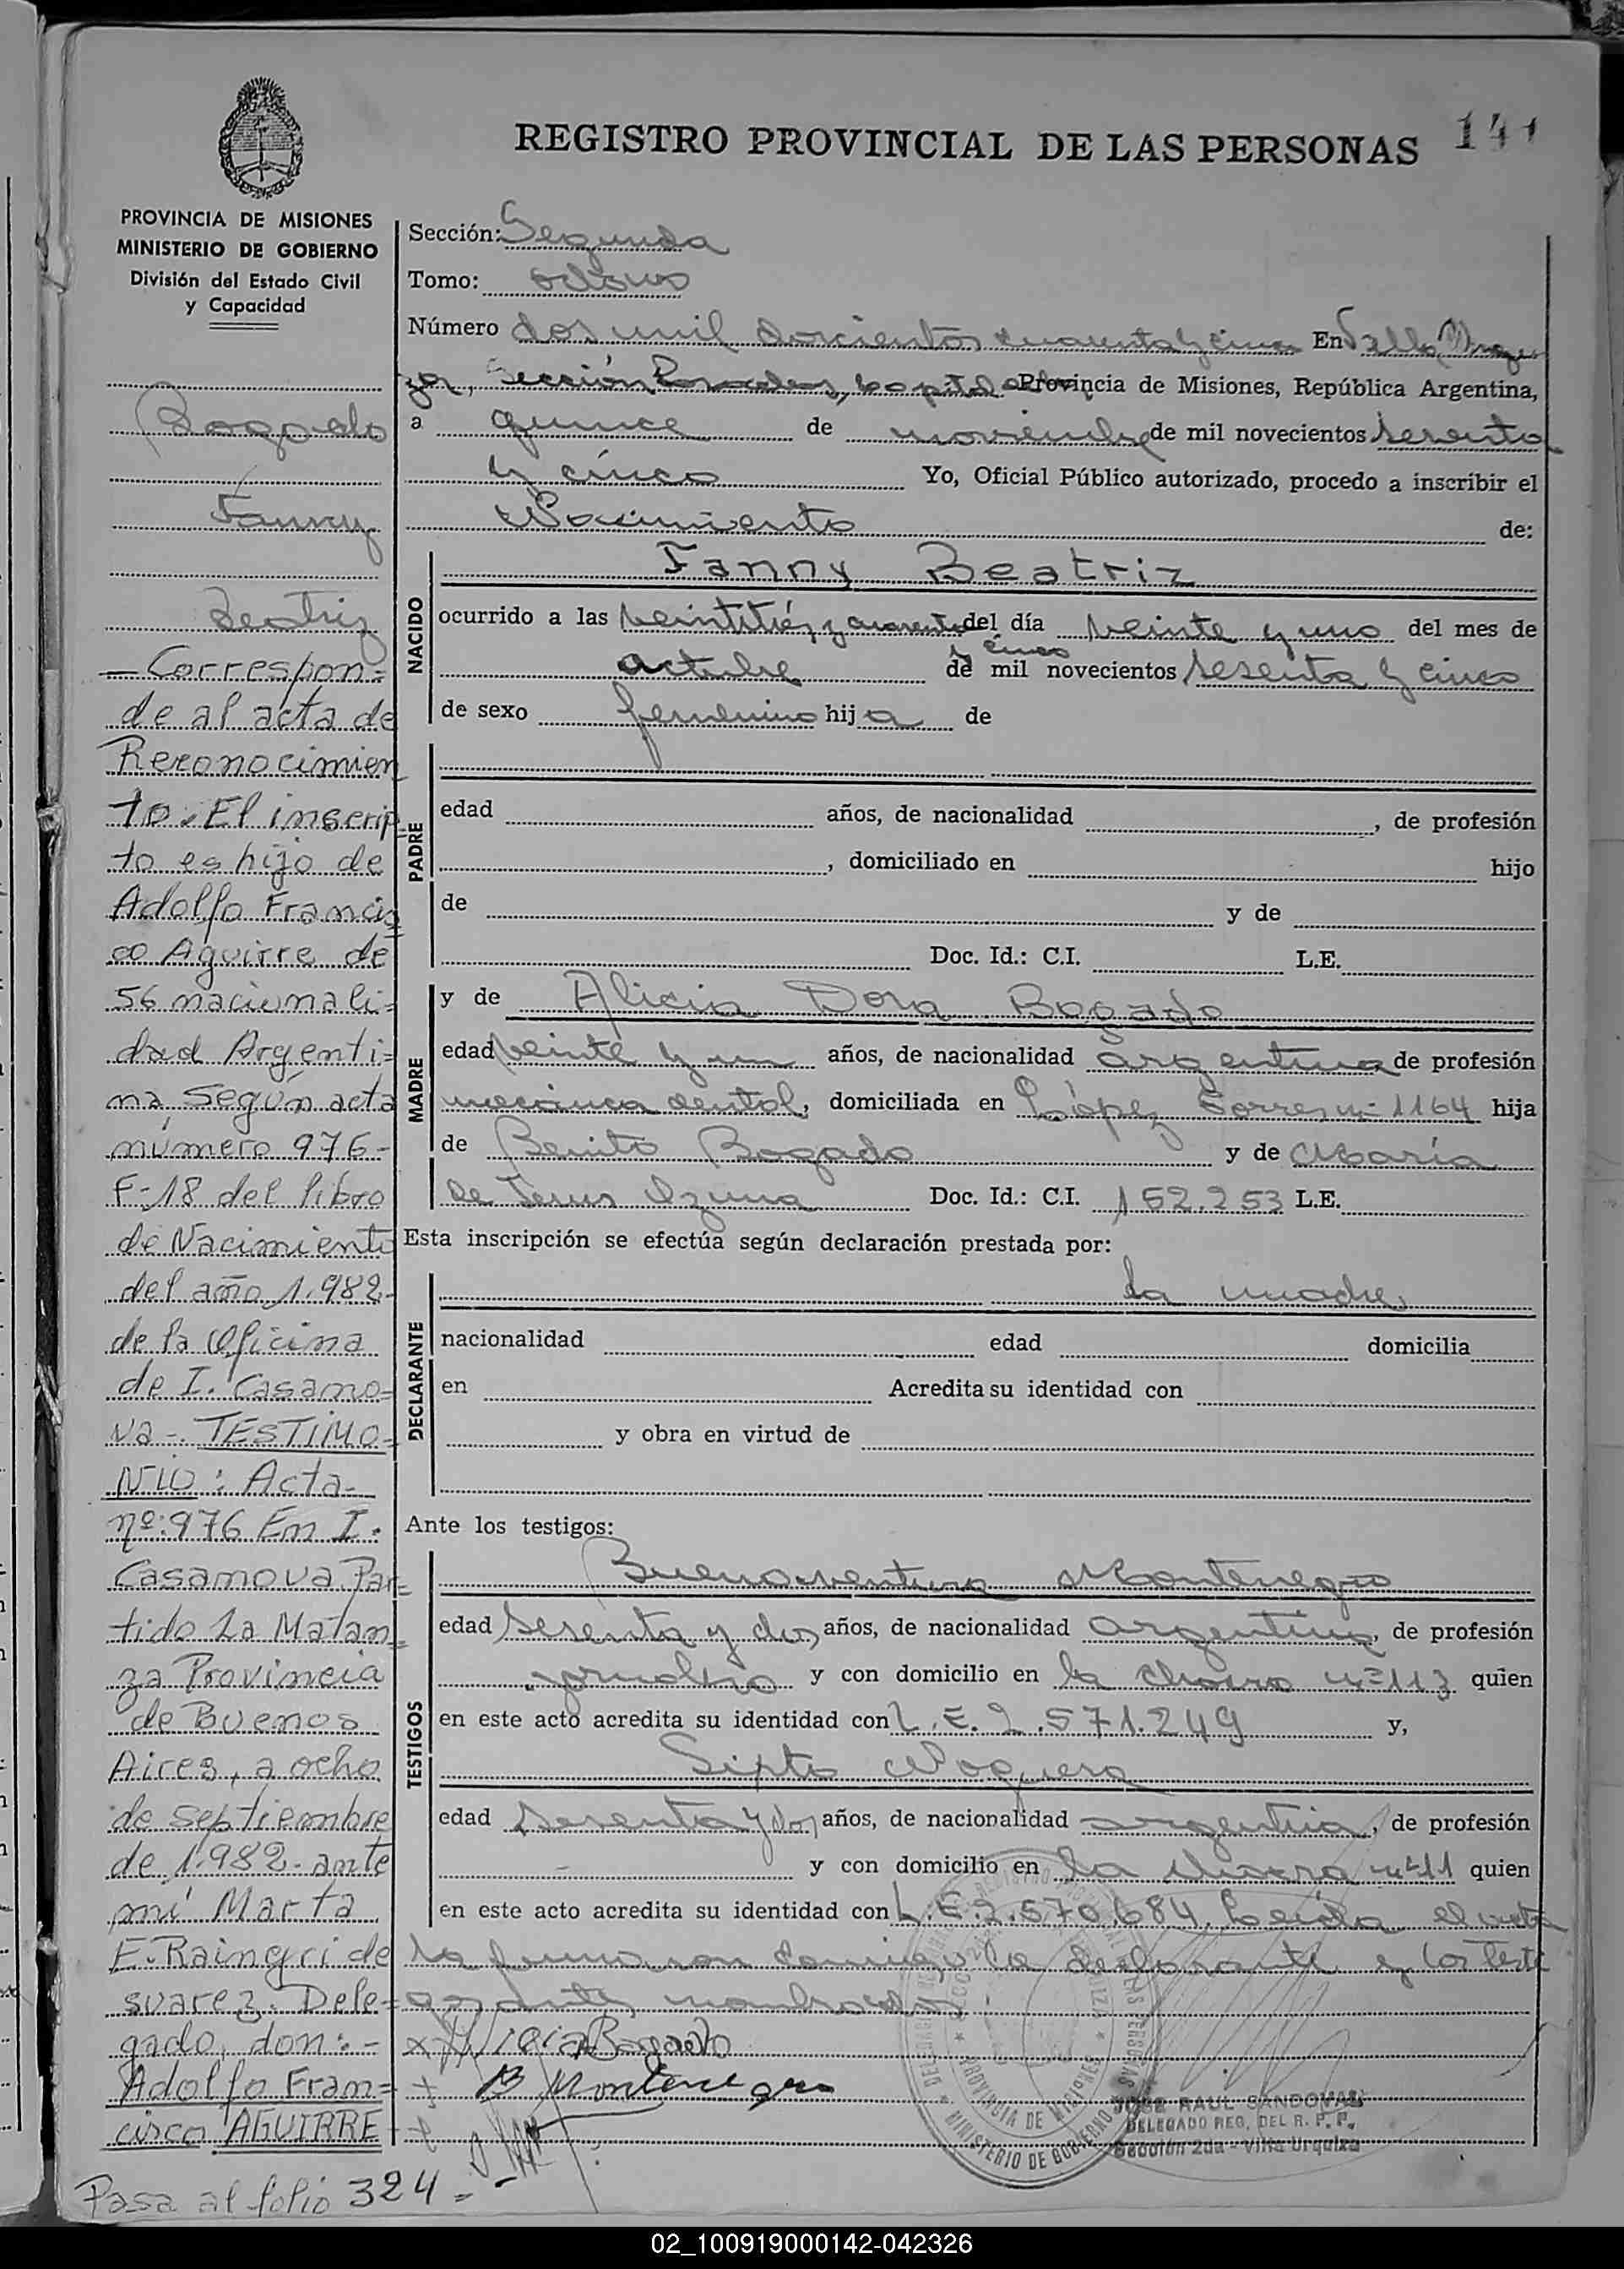 REGISTRO PROVINCIAL DE LAS PERSONAS 141
PROVINCIA DE MISIONES
MINISTERIO DE GOBIERNO
División del Estado Civil
y Capacidad
Bogado
Fanny
Beatriz
— Correspon=
de al acta de
Reconocimien
to. El inscrip
to es hijo de
Adolfo Francis
co Aguirre de
56 nacionali=
dad Argenti=
na según acta
número 976-
F-18 del libro
de Nacimiento
del año 1.982-
de la Oficina
de I. Casano=
va-. TESTIMO=
NIO: Acta-
nº: 976 En I.
Casanova Par=
tido La Matan=
za Provincia
de Buenos
Aires, a ocho
de septiembre
de 1.982- ante
mí Marta
E. Raingri de
suarez. Dele=
gado, don:-
Adolfo Fran=
cisco AGUIRRE
Pasa al folio 324.-
Sección: Segunda
Tomo: octavo
Número dos mil doscientos cuarenta y cinco En Villa Urqui
za, Sección Posadas, capital Provincia de Misiones, República Argentina,
a quince de noviembre de mil novecientos sesenta
y cinco Yo, Oficial Público autorizado, procedo a inscribir el
Nacimiento de:
NACIDO
Fanny Beatriz
ocurrido a las veintitrés y cuarenta y cinco del día veinte y uno del mes de
octubre de mil novecientos sesenta y cinco
de sexo femenino hija de
PADRE
edad años, de nacionalidad , de profesión
, domiciliado en hijo
de y de
Doc. Id.: C.I. L.E.
MADRE
y de Alicia Dora Bogado
edad veinte y un años, de nacionalidad argentina de profesión
mecánica dental, domiciliada en López Torres nº 1164 hija
de Benito Bogado y de María
de Jesus Ozuna Doc. Id.: C.I. 152.253 L.E.
Esta inscripción se efectúa según declaración prestada por:
DECLARANTE
la madre
nacionalidad edad domicilia
en Acredita su identidad con
y obra en virtud de
Ante los testigos:
TESTIGOS
Buenaventura Montenegro
edad sesenta y dos años, de nacionalidad argentina, de profesión
jornalero y con domicilio en la chacra nº 113 quien
en este acto acredita su identidad con L.E. 2.571.249 y,
Sixto Noguera
edad sesenta y dos años, de nacionalidad argentina, de profesión
- y con domicilio en la chacra nº 11 quien
en este acto acredita su identidad con L.E. 2.570.684. Leída el acta
la firmaron conmigo la declarante y los testi
gos antes nombrados.
x Alicia Bogado
+ B Montenegro
JOSE RAUL SANDOVAL
DELEGADO REG. DEL R. P. P.
Sección 2da - Villa Urquiza
MINISTERIO DE GOBIERNO
PROVINCIA DE MISIONES
02_100919000142-042326